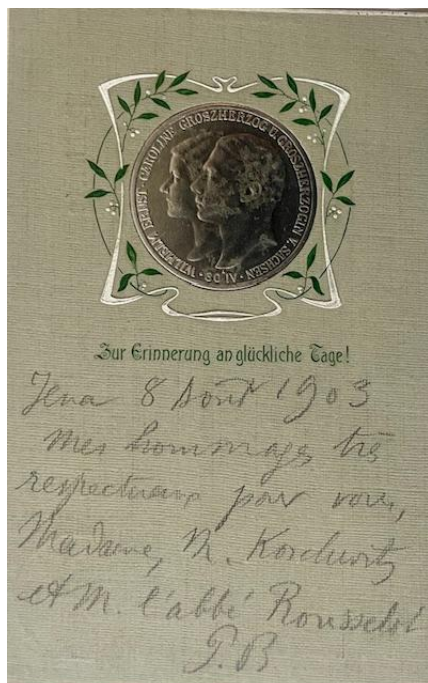 WILHELM ERNST · CAROLINE GROSZHERZOG U. GROSZHERZOGIN V. SACHSEN
30. IV. 03.
Zur Erinnerung an glückliche Tage!
Jena 8 Août 1903
Mes hommages très
respectueux pour vous,
Madame, M. Koschwitz
et M. l'abbé Rousselot
P.B